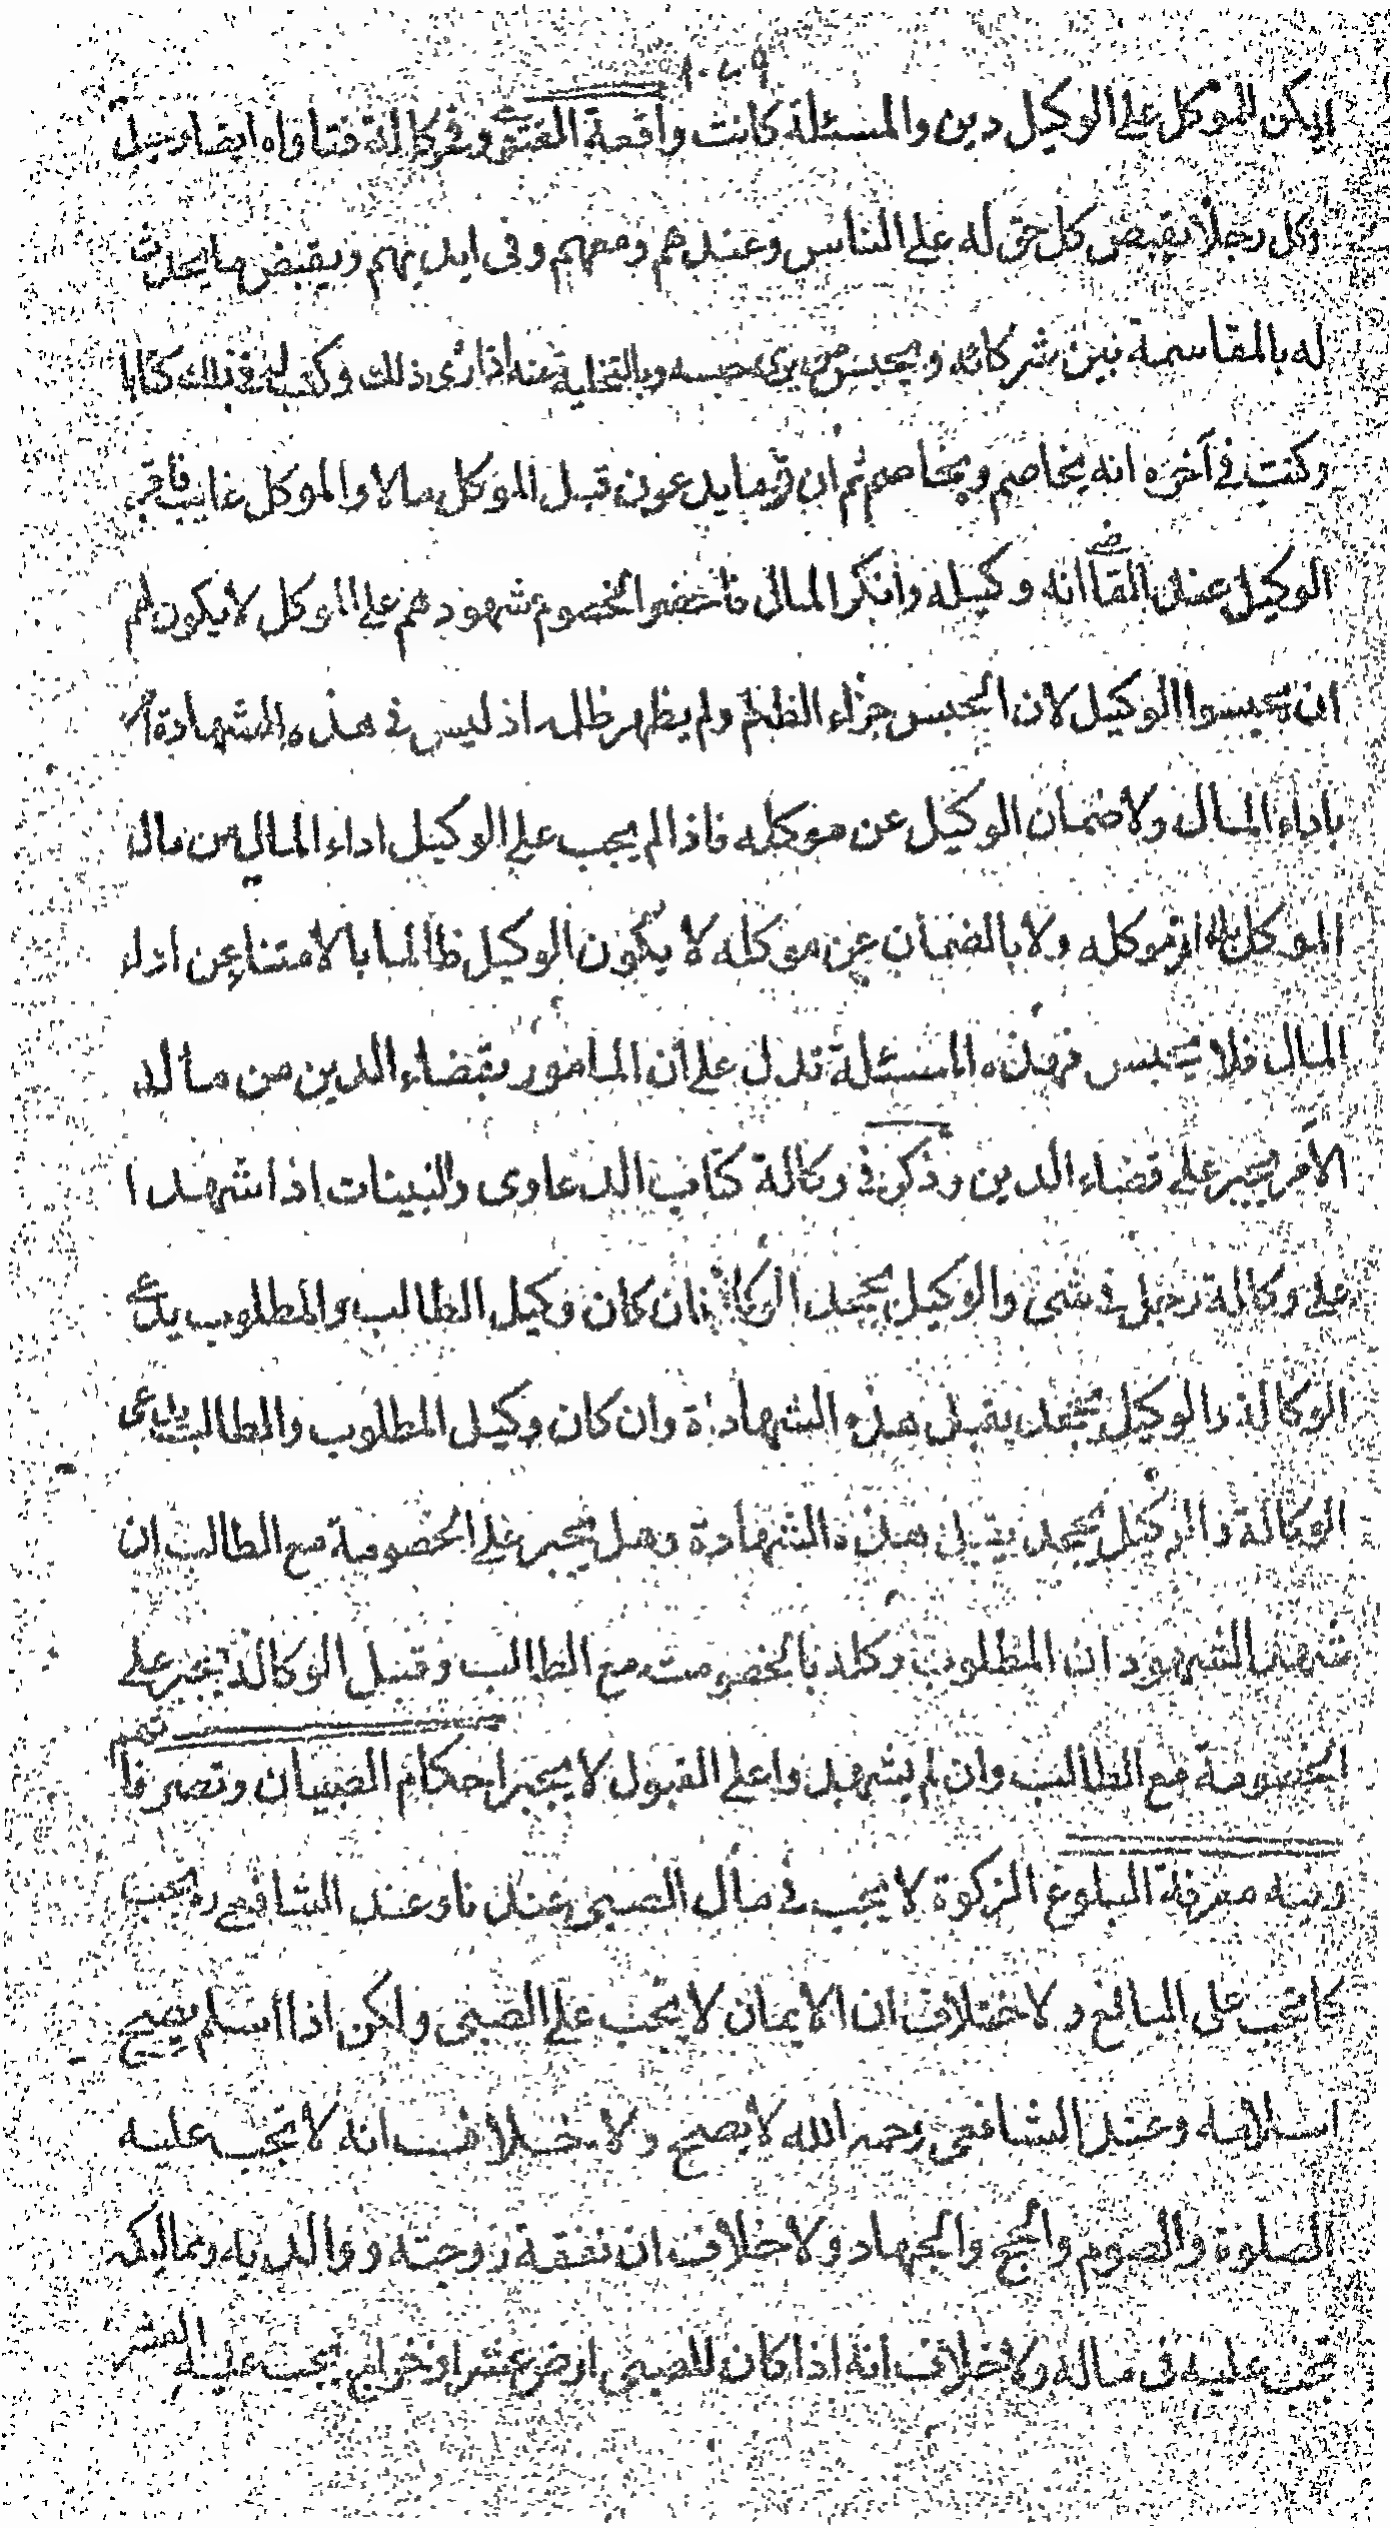 لم يكن للموكل على الوكيل دين والمسئلة كانت واقعة الفتوى وفى وكالة فتاواه ايضا رجل
وكل رجلا بقبض كل حق له على الناس وعندهم ومعهم وفى ايديهم وبقبض ما يحدث
له بالمقاسمة بين شركائه وبحبس من يرى حبسه وبالتخلية عنه اذا رأى ذلك وكتب له فى ذلك كتابا
وكتب فى آخره انه يخاصم ويخاصم ثم ان قوما يدعون قبل الموكل مالا والموكل غايب فاقر
الوكيل عند القاضى انه وكيله وانكر المال فاحضر الخصوم شهودهم على الموكل لا يكون لهم
ان يحبسوا الوكيل لان الحبس جزاء الظلم ولم يظهر ظلمه اذ ليس فى هذه الشهادة امر
باداء المال ولا ضمان الوكيل عن موكله فاذا لم يجب على الوكيل اداء المال من مال
الموكل بامر موكله ولا بالضمان عن موكله لا يكون الوكيل ظالما بالامتناع عن اداء
المال فلا يحبس فهذه المسئلة تدل على ان المامور بقضاء الدين من مال
الآمر يجبر على قضاء الدين وذكر فى وكالة كتاب الدعاوى والبينات اذا شهدا
على وكالة رجل فى شى والوكيل يجحد الوكالة فان كان وكيل الطالب والمطلوب يدعى
الوكالة والوكيل يجحد يقبل هذه الشهادة وان كان وكيل المطلوب والطالب يدعى
الوكالة والوكيل يجحد يقبل هذه الشهادة وهل يجبر على الخصومة مع الطالب ان
شهد الشهود ان المطلوب وكله بالخصومت مع الطالب وقبل الوكالة يجبر على
الخصومة مع الطالب وان لم يشهدوا على القبول لا يجبر احكام الصبيان وتصرفا تهم
وفيه معرفة البلوغ الزكوة لا يجب فى مال الصبى عندنا وعند الشافعى ره يجب
كما يجب على البالغ ولا ختلاف ان الايمان لا يجب على الصبى ولكن اذا اسلم يصح
اسلامه وعند الشافعى رحمه الله لا يصح ولا خلاف انه لا تجب عليه
الصلوة والصوم والحج والجهاد ولا خلاف ان نفقة زوجته ووالديه ومماليكه
تجب عليه فى ماله ولا خلاف انه اذا كان للصبى ارض عشر او خراج يجب عليه العشر